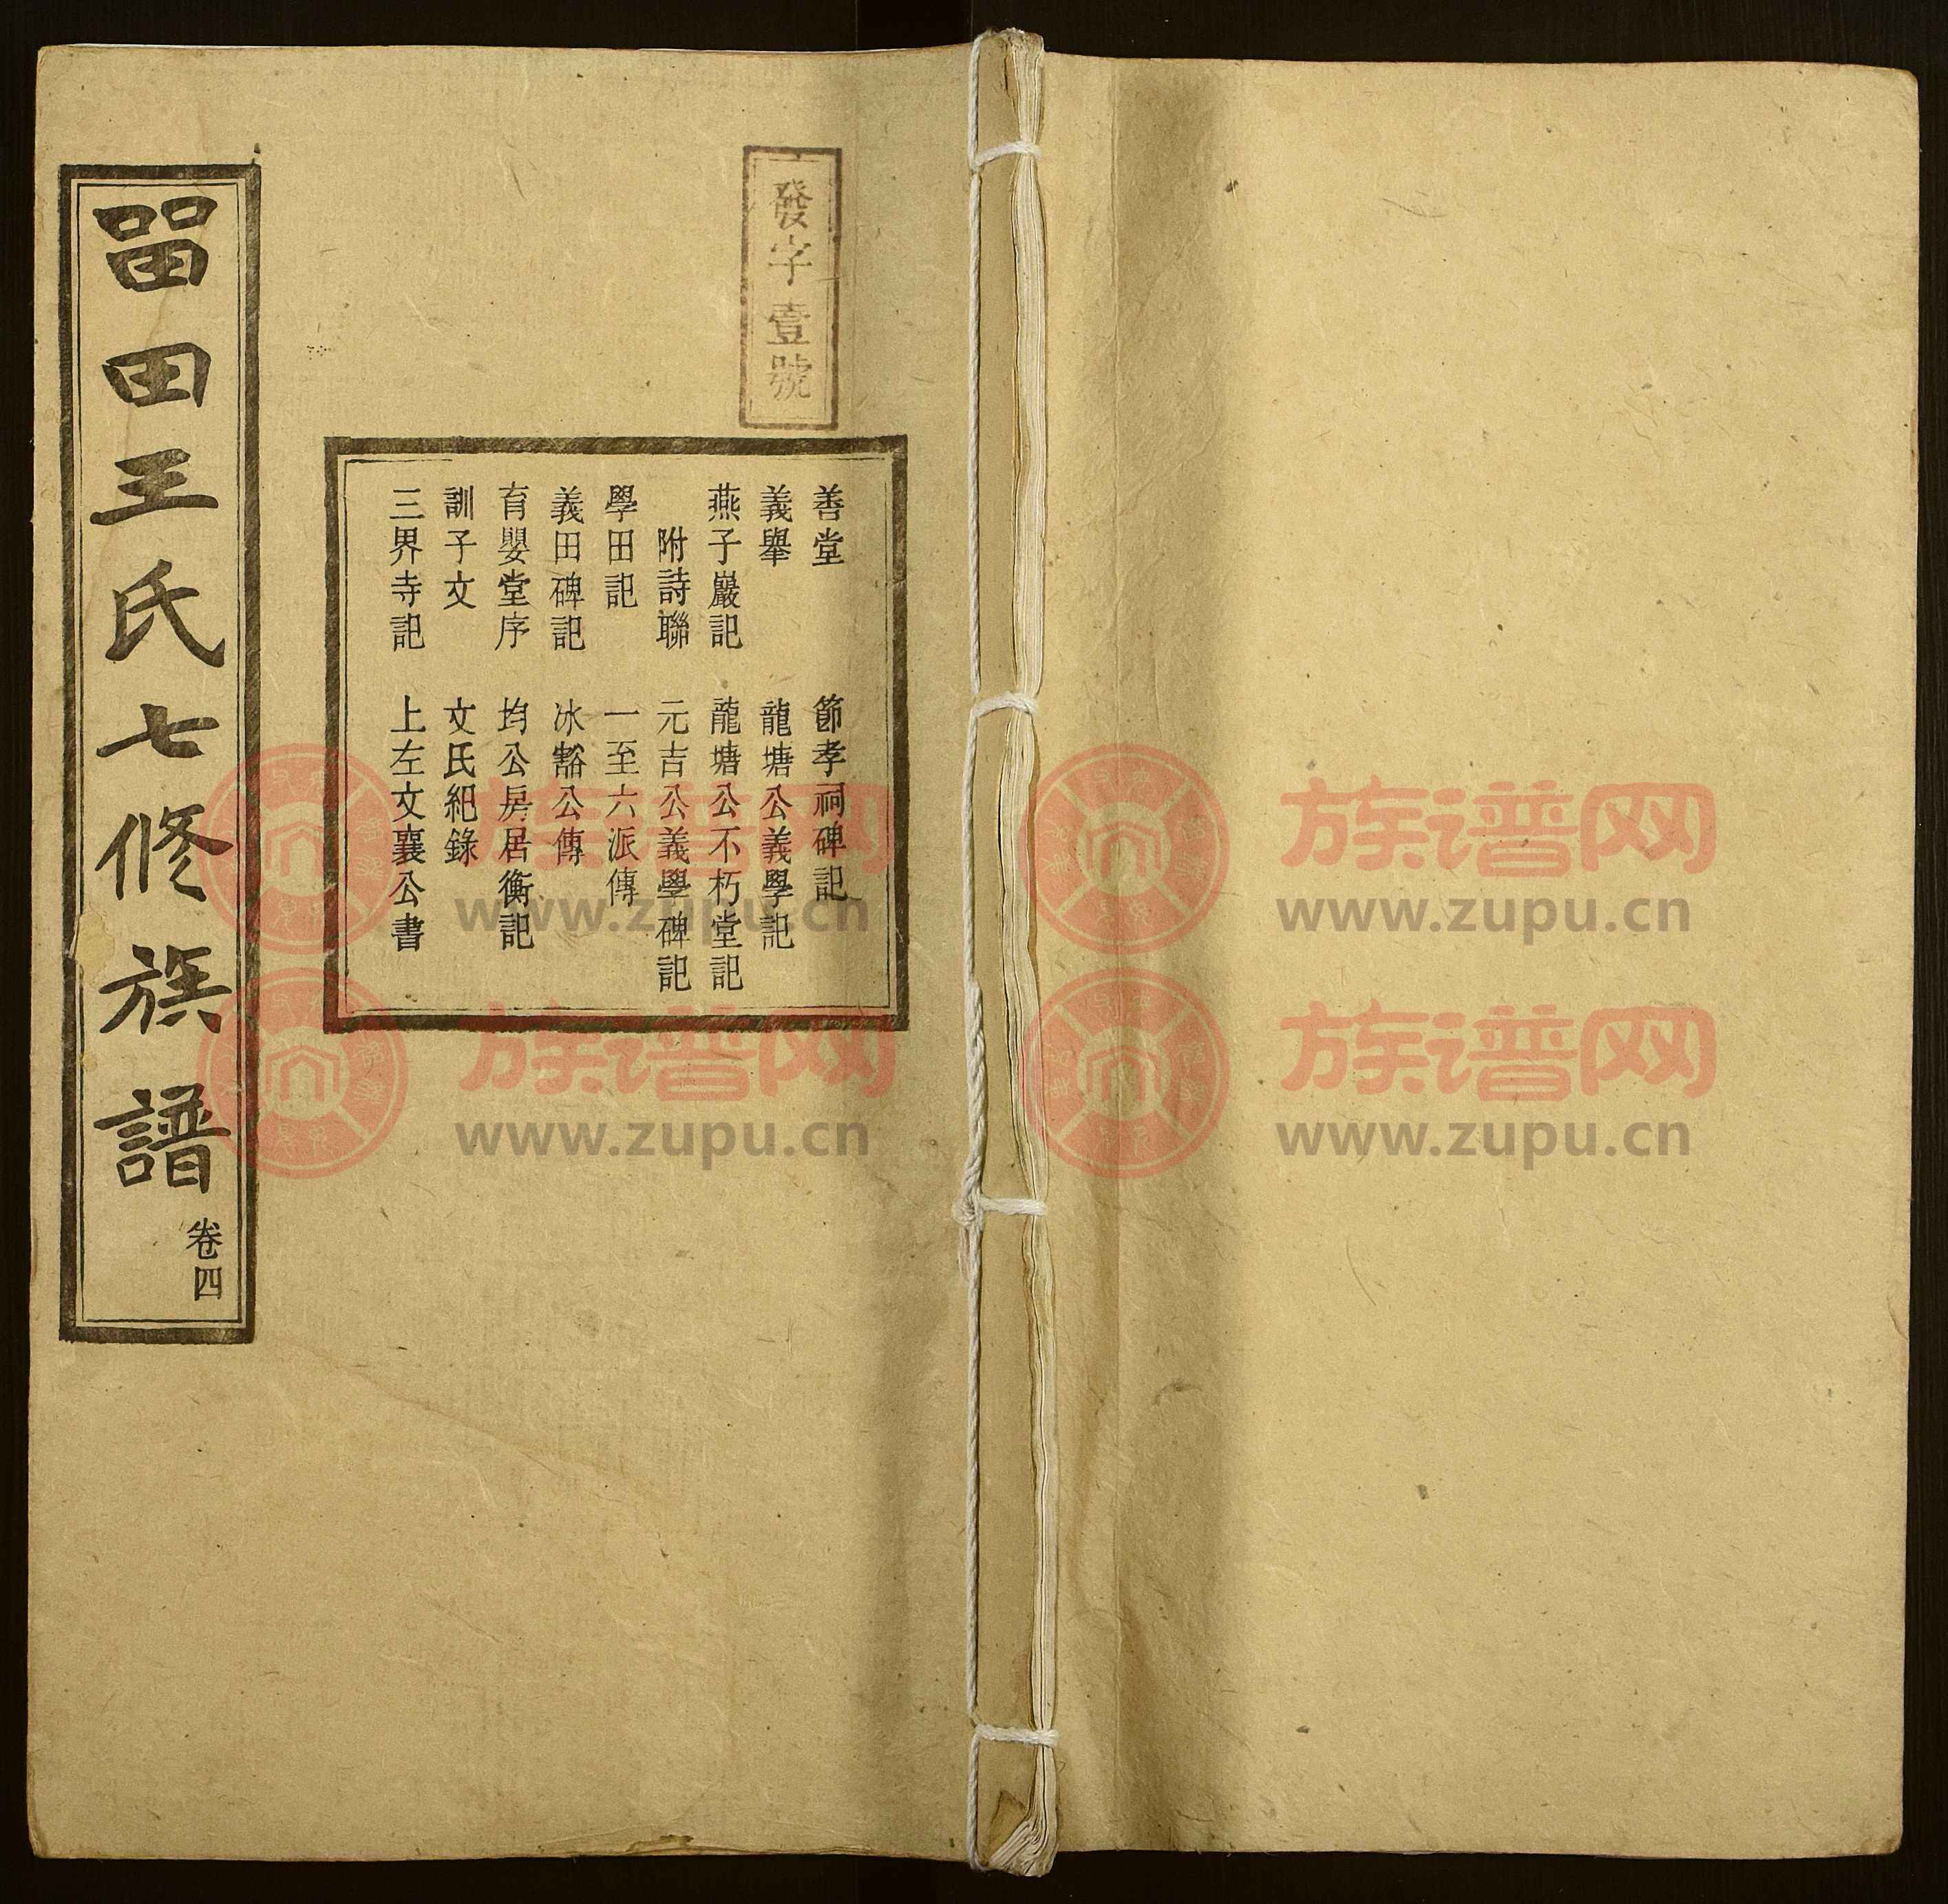 畱田王氏七修族譜
卷四
發字壹號
善堂 節孝祠碑記
義舉 龍塘公義學記
燕子巖記 龍塘公不朽堂記
附詩聯 元吉公義學碑記
學田記 一至六派傳
義田碑記 冰豁公傳
育嬰堂序 均公房居衡記
訓子文 文氏紀錄
三界寺記 上左文襄公書
族谱网
www.zupu.cn
族谱网
www.zupu.cn
族谱网
www.zupu.cn
族谱网
www.zupu.cn